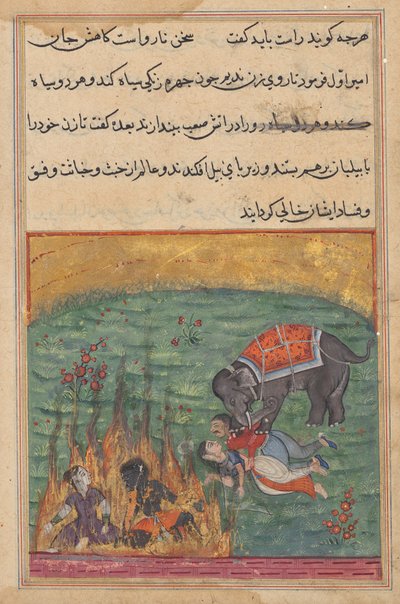 هرچه گویند راست باید گفت سخن ناراست کاهش جان
امیر اول فرمود تا روی زن ندیر چون چهره زنکی سیاه کند و هر دو سیاه
کند و هر دو را در آتش صعب بیندازند بعده گفت تا زن خود را
با پیلبان بر هم بستند و زیر پای پیل افکندند و عالم از خبث و خیانت و فسق
و فساد ایشان خالی کردانید